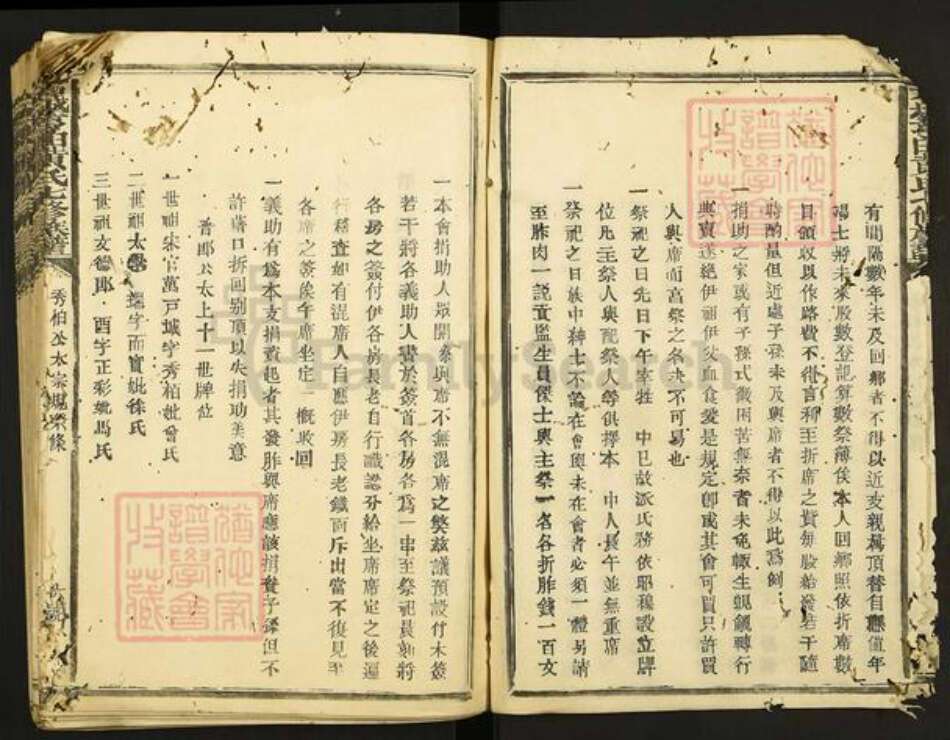 有間隔數年未及回鄉者不得以近支親房頂替自應值年
竭士將未來股數登記算數祭薄俟本人回鄉照依折席數
目領收以作路費不得言利至折席之貲每股給發若干隨
時酌量但近處子孫未及與席者不得以此為例
一捐助之家或有子孫式微困苦無奈者未免輒生覬覦轉行
典賣遂絕伊祖伊父血食爰是規定卽或其會可買只許買
人與席而富祭之名决不可易也
一祭祀之日先日下午宰牲 中已故派氏務依昭穆設立牌
位凡主祭人與配祭人等俱擇本 中人長午並無重席
一祭祀之日族中紳士不論在會與未在會者必須一體另請
至胙肉一説貢監生員傑士與主祭一名各折胙錢一百文
一本會捐助人眾開祭與席不無混席之獘兹議預設竹木簽
若干將各義助人書於簽首各房各為一串至祭祀員刻將
各房之簽付伊各房長老自行識認分給坐席席定之後逥
行稽查如有混席人自應伊房長老鐵面斥出當不復見至
各席之簽俟午席坐定一槪收回
一義助有爲本支捐貲起者其發胙與席應該捐貲子孫但不
許藉口拆回别項以失捐助美意
晋郎公太上十一世牌位
一世祖宋官萬戸城字秀柏妣曾氏
二世祖太學 諱字而實妣徐氏
三世祖文德郎 酉字正彩妣馬氏
秀柏公太宗規祭條
FamilySearch